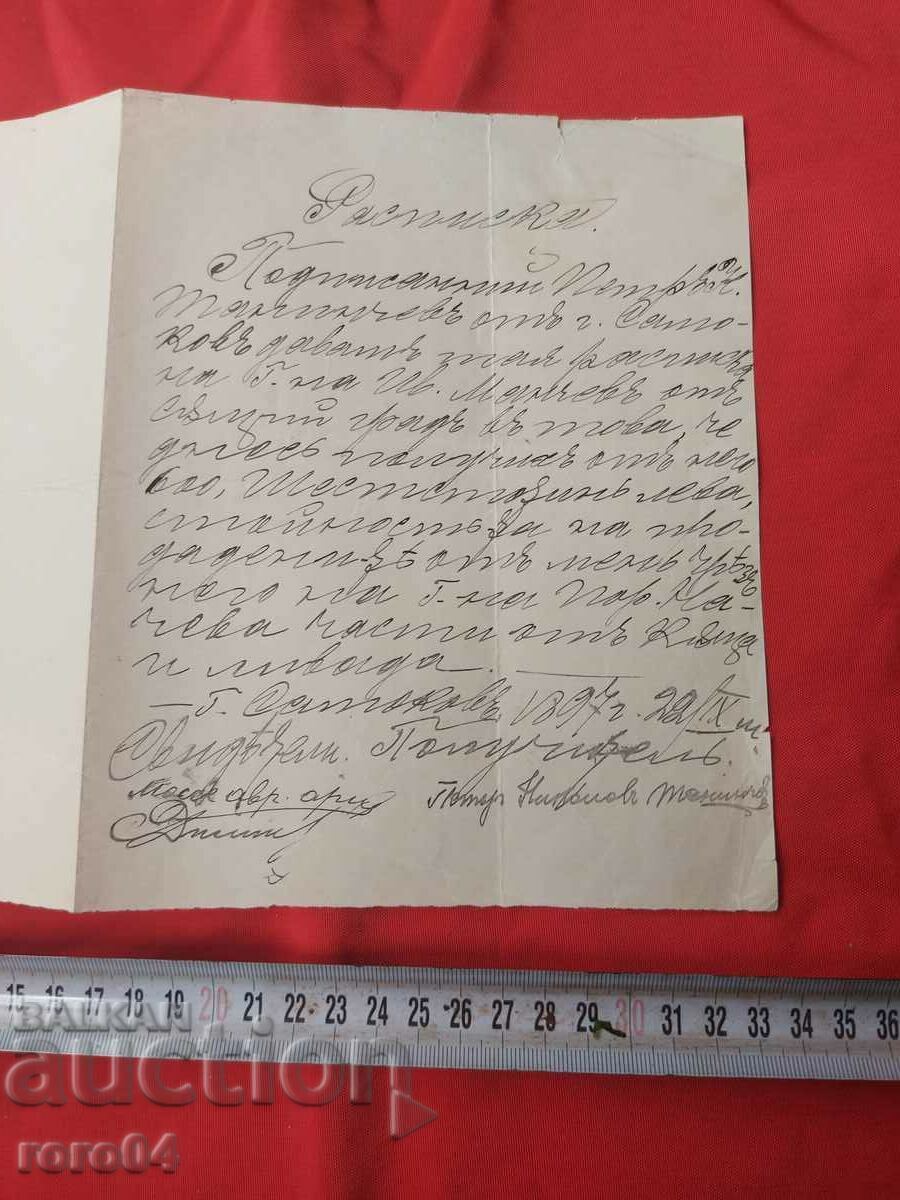 Расписка.
Подписанний Петръ Н.
отъ г. Само-
ковъ давамъ тая расписка
на Г-на Ив. Манчевъ отъ
сѫщий градъ въ това, че
днесь получихъ отъ него
600, Шестстотинь лева,
стойностьта на про-
даденитѣ отъ мень чрѣзъ
него на Г-на Пор. На-
чева части отъ кѫща
и ливада.
— Г. Самоковъ, 1897 г. 22/IX
Свидѣтели. Получитель.
Петър Николовъ
15 16 17 18 19 20 21 22 23 24 25 26 27 28 29 30 31 32 33 34 35 36
BALKAN
auction
roro04